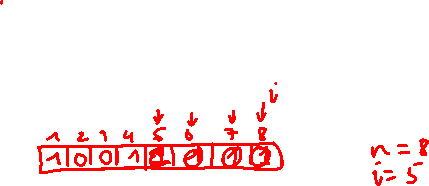 i
1 2 3 4 5 6 7 8
1 0 0 1
n = 8
i = 5